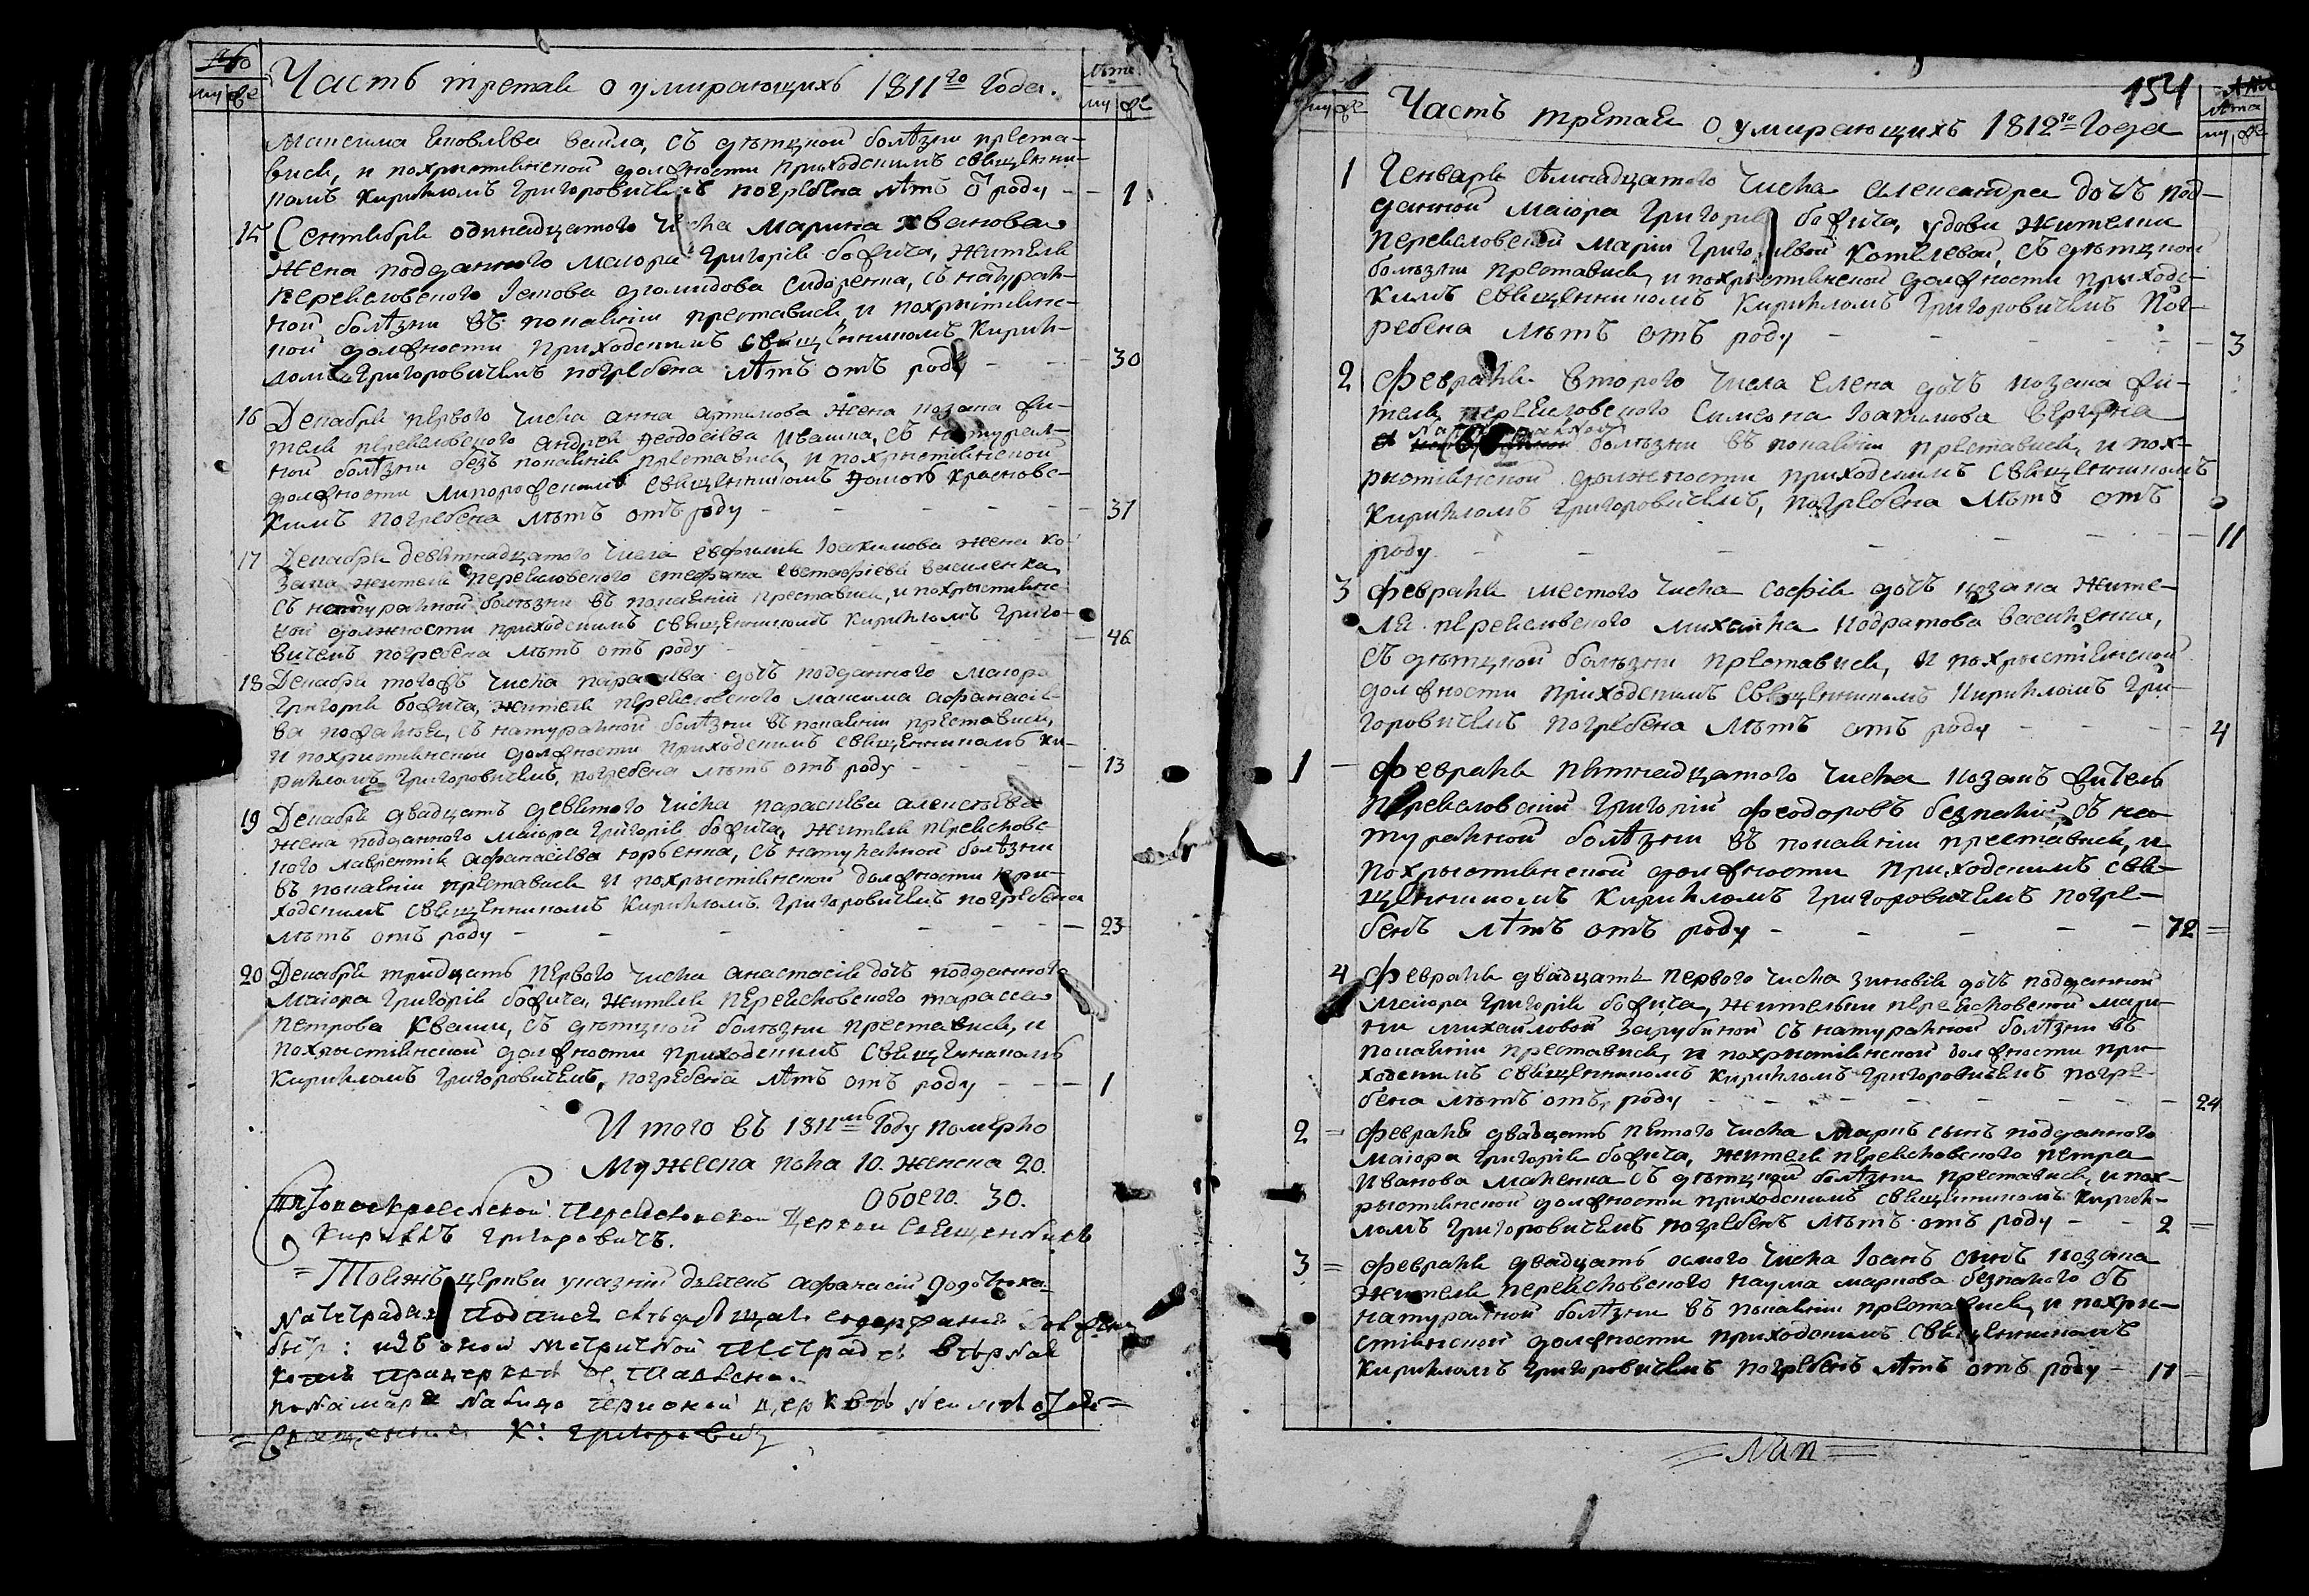 Часть третая о умирающихъ 1811го года.
лѣта
му же
му же
Максима Яковлева Вакула, съ дѣтцкой болѣзни преста-
вися, и похристиянской должности приходскимъ священни-
комъ Кирилломъ Григоровичемъ погребена лѣтъ ѿ роду - - 1
15 Сентября одинадцатого числа Марина Иванова
жена подданного маиора Григорія Божича, жителя
переясловского Іякова Диомидова Сидоренка, съ натураль-
ной болѣзни въ покаяніи преставися, и похристиянс-
кой должности приходскимъ священникомъ Кирил-
ломъ Григоровичемъ погребена лѣтъ отъ роду - - 30
16 Декабря первого числа Анна Артемова жена козака жи-
теля переясловского Андрея Феодосіева Ивашка, съ натурал-
ной болѣзни безъ покаянія преставися, и похрыстиянской
должности Липорожскимъ священникомъ Яковъ Красновс-
кимъ погребена лѣтъ отъ роду - - - - 37
17 Декабря девятнадцатого числа Евфимия Іоакимова жена ко-
зака жителя переясловского Стефана Евстафіева Василенка,
съ натуральной болѣзни въ покаяніи преставися, и похрыстиянс-
кой должности приходскимъ священникомъ Кирилломъ Григо-
вичемъ погребена лѣтъ отъ роду - - - - 46
18 Декабря тогожъ числа Параскева дочь подданного маиора
Григорія Божича, жителя переясловского Максима Афанасіе-
ва, съ натуральной болѣзни въ покаяніи преставися,
и похристиянской должности приходскимъ священникомъ Ки-
рилломъ Григоровичемъ, погребена лѣтъ отъ роду - - - - 13
19 Декабря двадцать девятого числа Параскева Алексѣева
жена подданного маіора Григорія Божича, жителя переясловс-
кого Лаврентія Афанасіева Юрченка, съ натуральной болѣзни
въ покаяніи преставися и похрыстиянской должности при-
ходскимъ священникомъ Кирилломъ Григоровичемъ погребена
лѣтъ отъ роду - - - - - - - 23
20 Декабря тридцать первого числа Анастасія дочь подданного
маіора Григорія Божича, жителя переясловского Тараса
Петрова Кваши, съ дѣтцкой болѣзни преставися, и
похрыстиянской должности приходскимъ священникомъ
Кирилломъ Григоровичемъ, погребена лѣтъ отъ роду - - - 1
И того въ 1811мъ году померло
мужеска пола 10. женска 20.
Обоего. 30.
Переясловской церкви священникъ
Кириллъ Григоровичъ.
Тояжъ церкви указній дьячекъ Афанасій
К: Григорович
154
Часть третая о умирающихъ 1812го Года
лѣта
му же
му же
1 Генваря семнадцатого числа Александра дочъ под-
данной маіора Григорія Божича, удовы жителки
переясловской Маріи Григоріевой Котелевой, съ дѣтцкой
болѣзни преставися, и похрыстиянской должности приходс-
кимъ священникомъ Кирилломъ Григоровичемъ пог-
ребена лѣтъ отъ роду - - - - - 3
2 Февраля второго числа Елена дочь козака жи-
теля переясловского Симеона Іоакимова Вергуна
натуральной болѣзни въ покаяніи преставися, и пох-
ристиянской должности приходскимъ священникомъ
Кирилломъ Григоровичемъ, погребена лѣтъ отъ
роду - - - - - - - 11
3 Февраля шестого числа Софія дочь козака жите-
ля переясловского Михаила Кодратова Василенка,
съ дѣтцкой болѣзни преставися, и похрыстиянской
должности приходскимъ священникомъ Кирилломъ Гри-
горовичемъ погребена лѣтъ отъ роду - - - - 4
1 - Февраля пятнадцатого числа козакъ житель
переясловскій Григорій Феодоровъ Безпалій, съ на-
туральной болѣзни въ покаяніи преставися, и
похрыстиянской должности приходскимъ свя-
щенникомъ Кирилломъ Григоровичемъ погре-
бенъ лѣтъ отъ роду - - - - - 72 =
4 Февраля двадцать первого числа Зиновія дочь подданной
маіора Григорія Божича, жителки переясловской Мари-
ни Михайловой Зарубиной съ натуральной болѣзни въ
покаяніи преставися, и похристиянской должности при-
ходскимъ священникомъ Кирилломъ Григоровичемъ погре-
бена лѣтъ отъ роду - - - - - - - 24
2 = Февраля двадцать пятого числа Маркъ сынъ подданного
маіора Григорія Божича, жителя переясловского Петра
Иванова Маценка съ дѣтцкой болѣзни преставися, и пох-
рыстиянской должности приходскимъ священникомъ Кирил-
ломъ Григоровичемъ погребенъ лѣтъ отъ роду - - 2 =
3 = Февраля двадцать осмого числа Іоанъ синъ козака
жителя переясловского Наума Маркова Безпалого съ
натуральной болѣзни въ покаяніи преставися, и похри-
стиянской должности приходскимъ священникомъ
Кирилломъ Григоровичемъ погребенъ лѣтъ отъ роду - 17 =